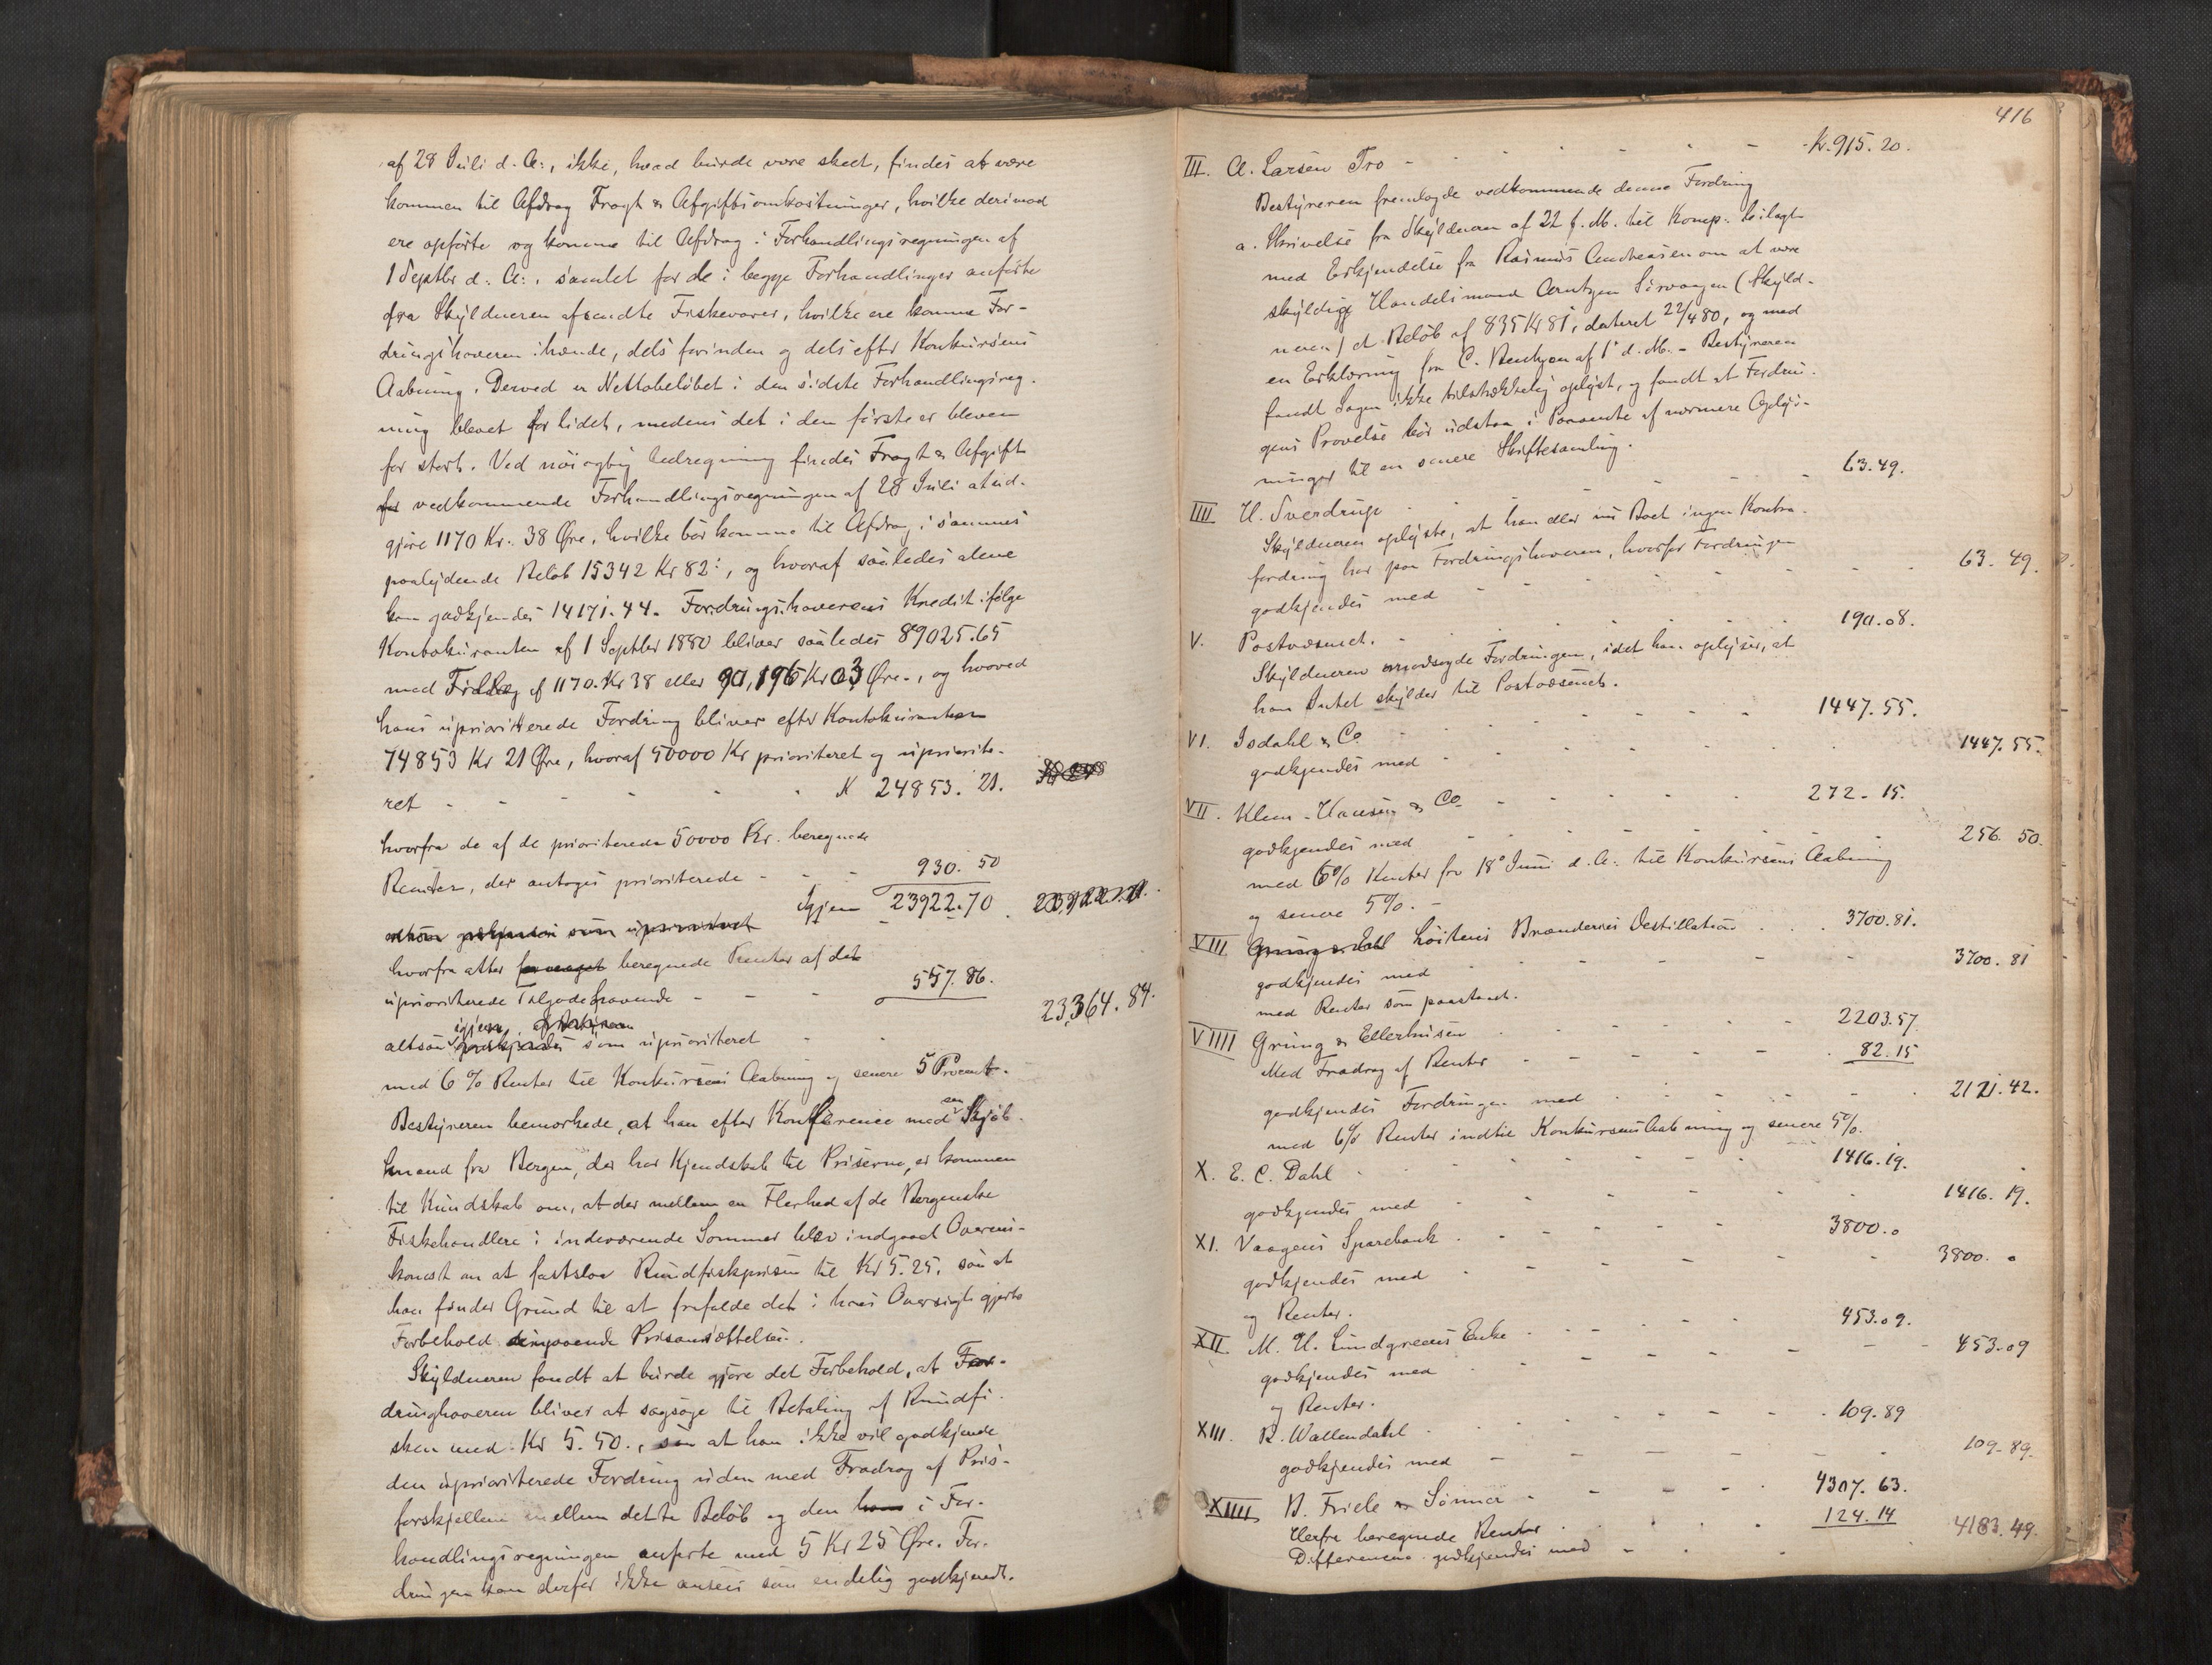 af 28 Juli d. A:, ikke, hvad burde være skeet, findes at være
kommen til Afdrag Fragt & Afgiftsomkostninger, hvilke derimod
ere opførte og komme til Afdrag i Forhandlingsregningen af
1 Septbr d: A:, samlet for de i begge Forhandlinger anførte
fra Skyldneren afsendte Fiskevarer, hvilke ere komne For-
dringshaveren ihænde, dels forinden og dels efter Konkursens
Aabning. Derved er Nettobeløbet i den sidste Forhandlingsreg-
ning blevet for lidet, medens det i den første er bleven
for stort. Ved nøiagtig Udregning findes Fragt & Afgift
for vedkommende Forhandlingsregningen af 28 Juli at ud-
gjøre 1170 Kr. 38 Øre, hvilke bør komme til Afdrag i sammes
paalydende Beløb 15342 Kr 82:, og hvoraf saaledes alene
kan godkjendes 14171.44. Fordringshaverens Kredit ifølge
Kontokuranten af 1 Septbr 1880 bliver saaledes 89025.65
med Tillæg af 1170 Kr 38 eller 90,196 Kr 03 Øre., og hvorved
hans uprioriterede Fordring bliver efter Kontokuranten
74853 Kr 21 Øre, hvoraf 50000 Kr prioriteret og upriorite-
ret - - - - - K 24853. 21.
hvorfra de af de prioriterede 50000 Kr. beregnede
Renter, der antages prioriterede - - - 930. 50
Igjen 23922.70
altsaa godkjendes som uprioriteret
hvorfra atter beregnede Renter af det
uprioriterede Tilgodehavende - - - 557. 86.
igjen
altsaa godkjendes som uprioriteret - - 23,364. 84.
med 6 % Renter til Konkursens Aabning og senere 5 Procent.
Bestyreren bemærkede, at han efter Konference med en Kjøb-
mand fra Bergen, der har Kjendskab til Priserne, er kommen
til Kundskab om, at der mellem en Flerhed af de Bergenske
Fiskehandlere i indeværende Sommer blev indgaaet Overens-
komst om at fastslaa Rundfiskprisen til Kr 5.25, saa at
han finder Grund til at frafalde det i hans Oversigt gjorte
Forbehold Prisansættelsen.
Skyldneren fandt at burde gjøre det Forbehold, at For-
dringhaveren bliver at sagsøge til Betaling af Rundfi-
sken med Kr 5.50., saa at han ikke vil godkjende
den uprioriterede Fordring uden med Fradrag af Pris-
forskjellen mellem dette Beløb og den i For-
handlingsregningen anførte med 5 Kr 25 Øre. For-
dringen kan derfor ikke ansees som endelig godkjendt.
416
III. A. Larsen Tro - - - - - - Kr. 915. 20.
Bestyreren fremlagde vedkommende denne Fordring
a. Skrivelse fra Skyldneren af 22 f. M. til Komp: bilagt
med Erkjendelse fra Rasmus Andreasen om at være
skyldig Handelsmand Arntzen Sørvaagen (Skyld-
neren) et Beløb af 835 Kr 81, dateret 22/4 80, og med
en Erklæring fra C. af 1 d. M. - Bestyreren
fandt Sagen ikke tilstrækkelig oplyst, og fandt at Fordrin-
gens Prøvelse bør udstaa i Paavente af nærmere Oplys-
ninger til en senere Skiftesamling.
IIII H. Sverdrup - - - - - 63. 49.
Skyldneren oplyste, at han eller nu Boet ingen Kontra-
fordring har paa Fordringshaveren, hvorfor Fordringen
godkjendes med - - - - - - 63. 49.
V. Postvæsenet. - - - - - 190. 08.
Skyldneren modsagde Fordringen, idet han oplyser, at
han Intet skylder til Postvæsenet.
VI. Isdahl & Co - - - - - 1447. 55.
godkjendes med - - - - - 1447. 55.
VII. Klem-Hansen & Co. - - - - 272. 15.
godkjendes med - - - - - - 256. 50.
med 6% Renter fra 18 Juni d. A: til Konkursens Aabning
og senere 5%. -
VIII Grung & Dahl Løitens Brænderies Destillation . . 3700. 81.
godkjendes med - - - - - - 3700. 81
med Renter som paastaaet.
VIIII Grung & Ellerhusen - - - - - 2203.57
Med Fradrag af Renter - - - - - 82. 15
godkjendes Fordringen med - - - - - 2121. 42.
med 6% Renter indtil Konkursens Aabning og senere 5%.
X. E. C. Dahl - - - - - - 1416. 19.
godkjendes med - - - - - 1416. 19.
XI. Vaagens Sparebank - - - - - 3800. 0
godkjendes med - - - - - 3800. 0
og Renter.
XII M. H. Lundgreens Enke - - - - 453. 09.
godkjendes med - - - - - - 453. 09
og Renter.
XIII. R. Wallendahl - - - - - 109. 89
godkjendes med - - - - - 109. 89.
XIIII B. Friele & Sønner - - - - 4307. 63.
Herfra beregnede Renter - - - - 124. 14
Differencen godkjendes med - - - 4183. 49.